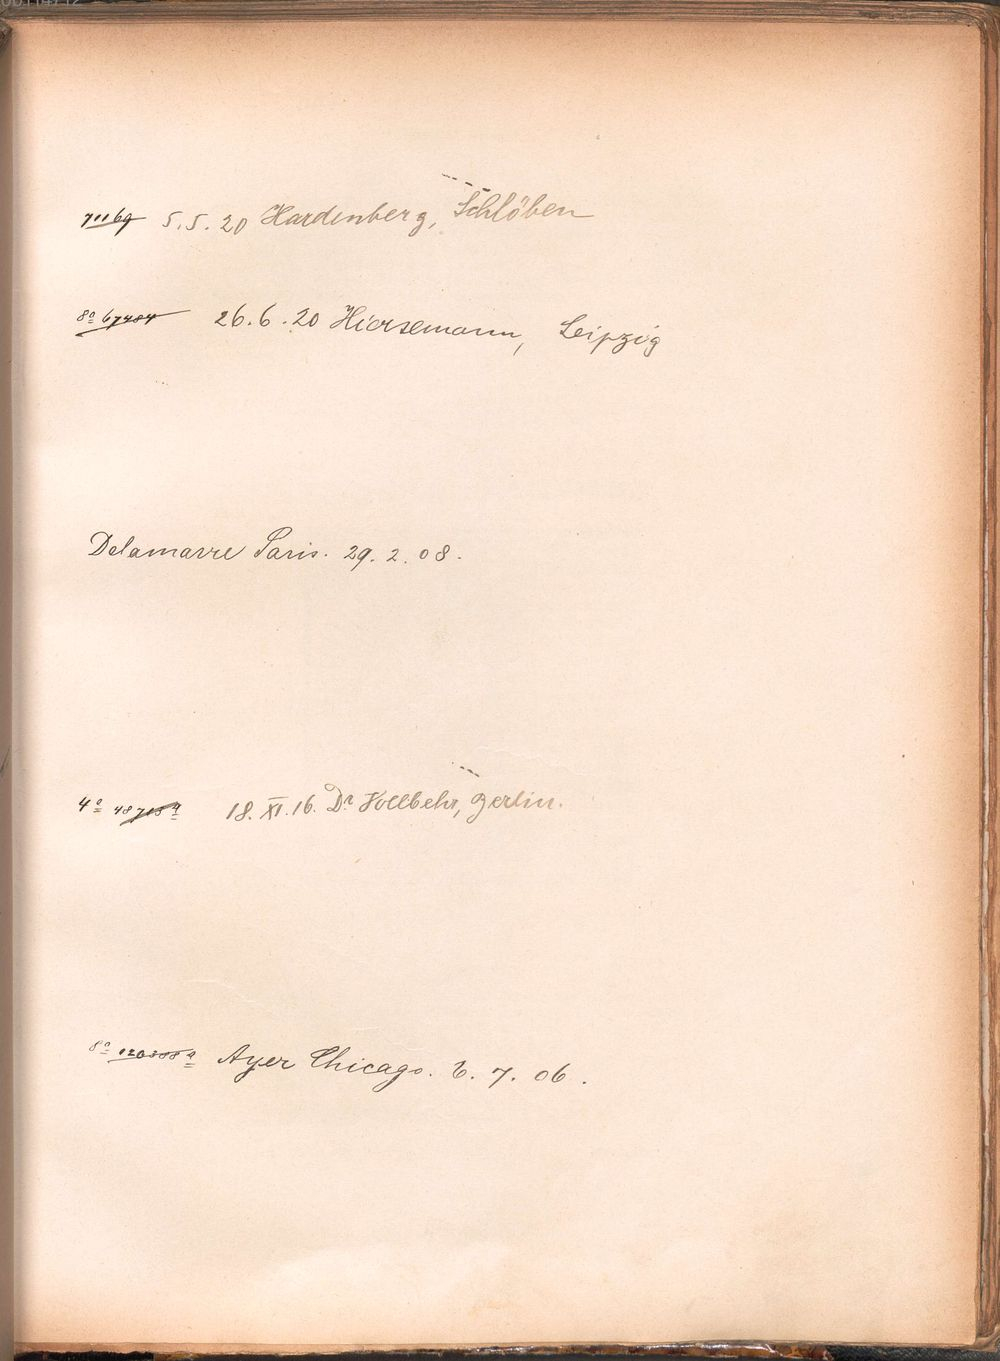 71169 5.5.20 Hardenberg, Schlöben
8º 67484 26.6.20 Hiersemann, Leipzig
Delamarre Paris. 29.2.08.
4º 18.XI.16. Dr Vollbehr, Berlin.
8º Ayer Chicago. 6.7.06.